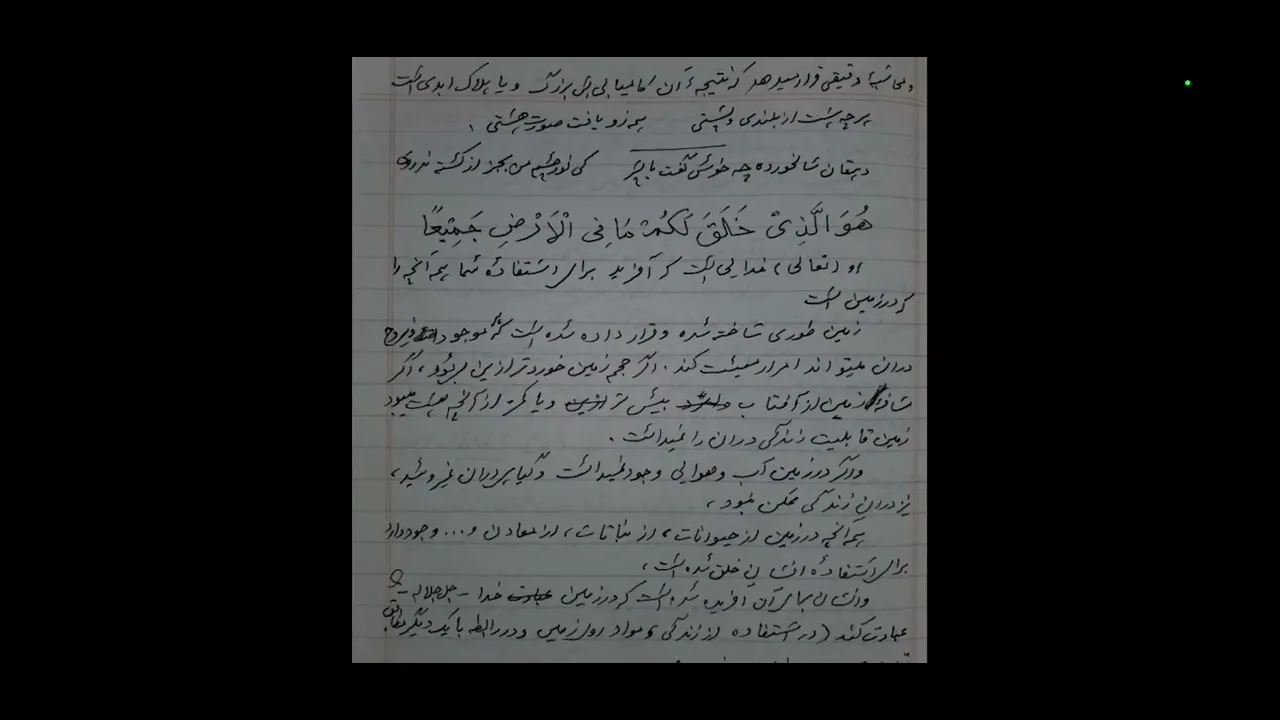 دقیقی قرار میدهد که نتیجهٔ آن کامیابی بس بزرگ و یا هلاک ابدی است
هر چه هست از بلندی و پستی همه زو یافت صورت هستی
دهقان سالخورده چه خوش گفت با پسر کی نور چشم من بجز از کشته ندروی
هُوَ الَّذِیْ خَلَقَ لَکُمْ مَا فِی الْاَرْضِ جَمِیْعًا
او (تعالی) خدایی است که آفرید برای استفادهٔ شما همه آنچه را
که در زمین است
زمین طوری ساخته شده و قرار داده شده است که موجود
در آن میتواند امرار معیشت کند. اگر حجم زمین خوردتر ازین می‌بود، اگر
زمین از آفتاب بیش تر و یا کمتر از آنچه هست میبود
زمین قابلیت زندگی در آن را نمیداشت.
و اگر در زمین آب و هوایی وجود نمیداشت و گیاه در آن نمیروئید،
نیز در آن زندگی ممکن نبود،
همه آنچه در زمین از حیوانات، از نباتات، از معادن و... وجود دارد
برای استفادهٔ انسان خلق شده است،
و انسان برای آن آفریده شده است که در زمین خدا - جل جلاله -
عبادت کند (در استفاده از زندگی و مواد روی زمین و در رابطه با یک دیگر مطابق